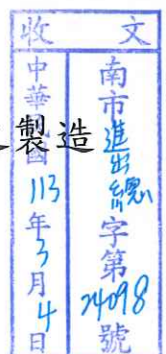 收文
南市進出總字第24098號
中華民國113年3月4日
製造